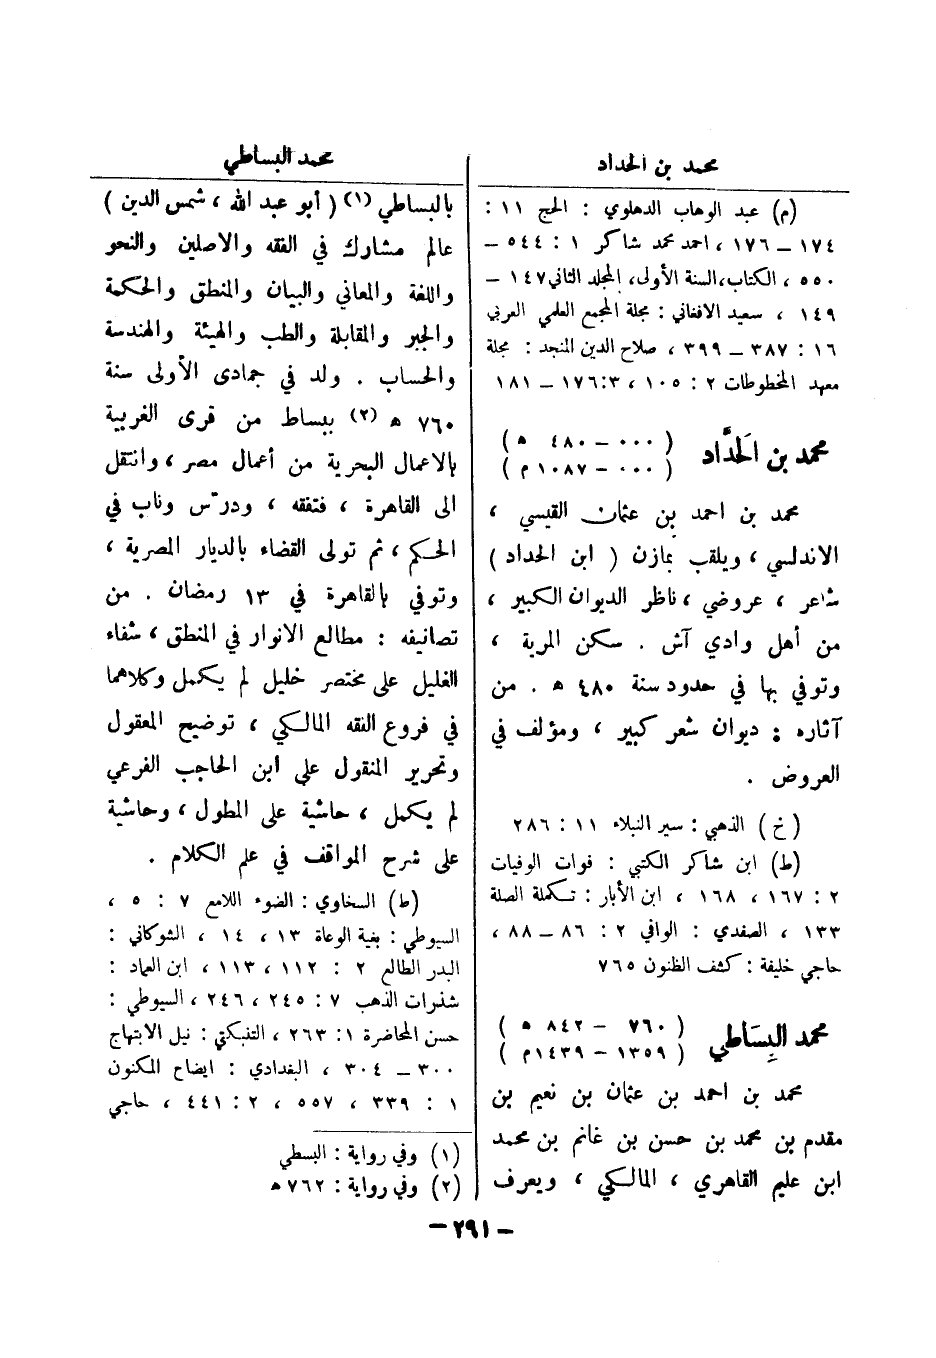 محمد بن الحداد
(م) عبد الوهاب الدهلوي : الحج ١١ :
١٧٤ – ١٧٦ ، احمد محمد شاكر ١ : ٥٤٤ –
٥٥٠ ، الكتاب،السنة الأولى، المجلد الثاني ١٤٧ –
١٤٩ ، سعيد الافغاني : مجلة المجمع العلمي العربي
١٦ : ٣٨٧ – ٣٩٩ ، صلاح الدين المنجد : مجلة
معهد المخطوطات ٢ : ١٠٥ ، ٣:١٧٦ – ١٨١
محمد بن الحَدَّاد
( ٠٠٠ – ٤٨٠ ه )
( ٠٠٠ – ١٠٨٧ م )
محمد بن احمد بن عثمان القيسي ،
الاندلسي ، ويلقب بمازن ( ابن الحداد )
شاعر ، عروضي ، ناظر الديوان الكبير ،
من أهل وادي آش . سكن المرية ،
وتوفي بها في حدود سنة ٤٨٠ ه . من
آثاره : ديوان شعر كبير ، ومؤلف في
العروض .
(خ) الذهبي : سير النبلاء ١١ : ٢٨٦
(ط) ابن شاكر الكتبي : فوات الوفيات
٢ : ١٦٧ ، ١٦٨ ، ابن الأبار : تكملة الصلة
١٣٣ ، الصفدي : الوافي ٢ : ٨٦ – ٨٨ ،
حاجي خليفة : كشف الظنون ٧٦٥
محمد البِسَاطي
( ٧٦٠ – ٨٤٢ ه )
( ١٣٥٩ – ١٤٣٩م )
محمد بن احمد بن عثمان بن نعيم بن
مقدم بن محمد بن حسن بن غانم بن محمد
ابن عليم القاهري ، المالكي ، ويعرف
محمد البساطي
بالبساطي (١) ( أبو عبد الله ، شمس الدين )
عالم مشارك في الفقه والاصلين والنحو
واللغة والمعاني والبيان والمنطق والحكمة
والجبر والمقابلة والطب والهيئة والهندسة
والحساب . ولد في جمادى الأولى سنة
٧٦٠ ه (٢) ببساط من قرى الغربية
بالاعمال البحرية من أعمال مصر ، وانتقل
الى القاهرة ، فتفقه ، ودرّس وناب في
الحكم ، ثم تولى القضاء بالديار المصرية ،
وتوفي بالقاهرة في ١٣ رمضان . من
تصانيفه : مطالع الانوار في المنطق ، شفاء
الغليل على مختصر خليل لم يكمل وكلاهما
في فروع الفقه المالكي ، توضيح المعقول
وتحرير المنقول على ابن الحاجب الفرعي
لم يكمل ، حاشية على المطول ، وحاشية
على شرح المواقف في علم الكلام .
(ط) السخاوي : الضوء اللامع ٧ : ٥ ،
السيوطي : بغية الوعاة ١٣ ، ١٤ ، الشوكاني :
البدر الطالع ٢ : ١١٢ ، ١١٣ ، ابن العماد :
شذرات الذهب ٧ : ٢٤٥ ، ٢٤٦ ، السيوطي :
حسن المحاضرة ١ : ٢٦٣ ، التنبكتي : نيل الابتهاج
٣٠٠ – ٣٠٤ ، البغدادي : ايضاح المكنون
١ : ٣٣٩ ، ٥٥٧ ، ٢ : ٤٤١ ، حاجي
(١) وفي رواية : البسطي
(٢) وفي رواية : ٧٦٢ ه
– ٢٩١ –